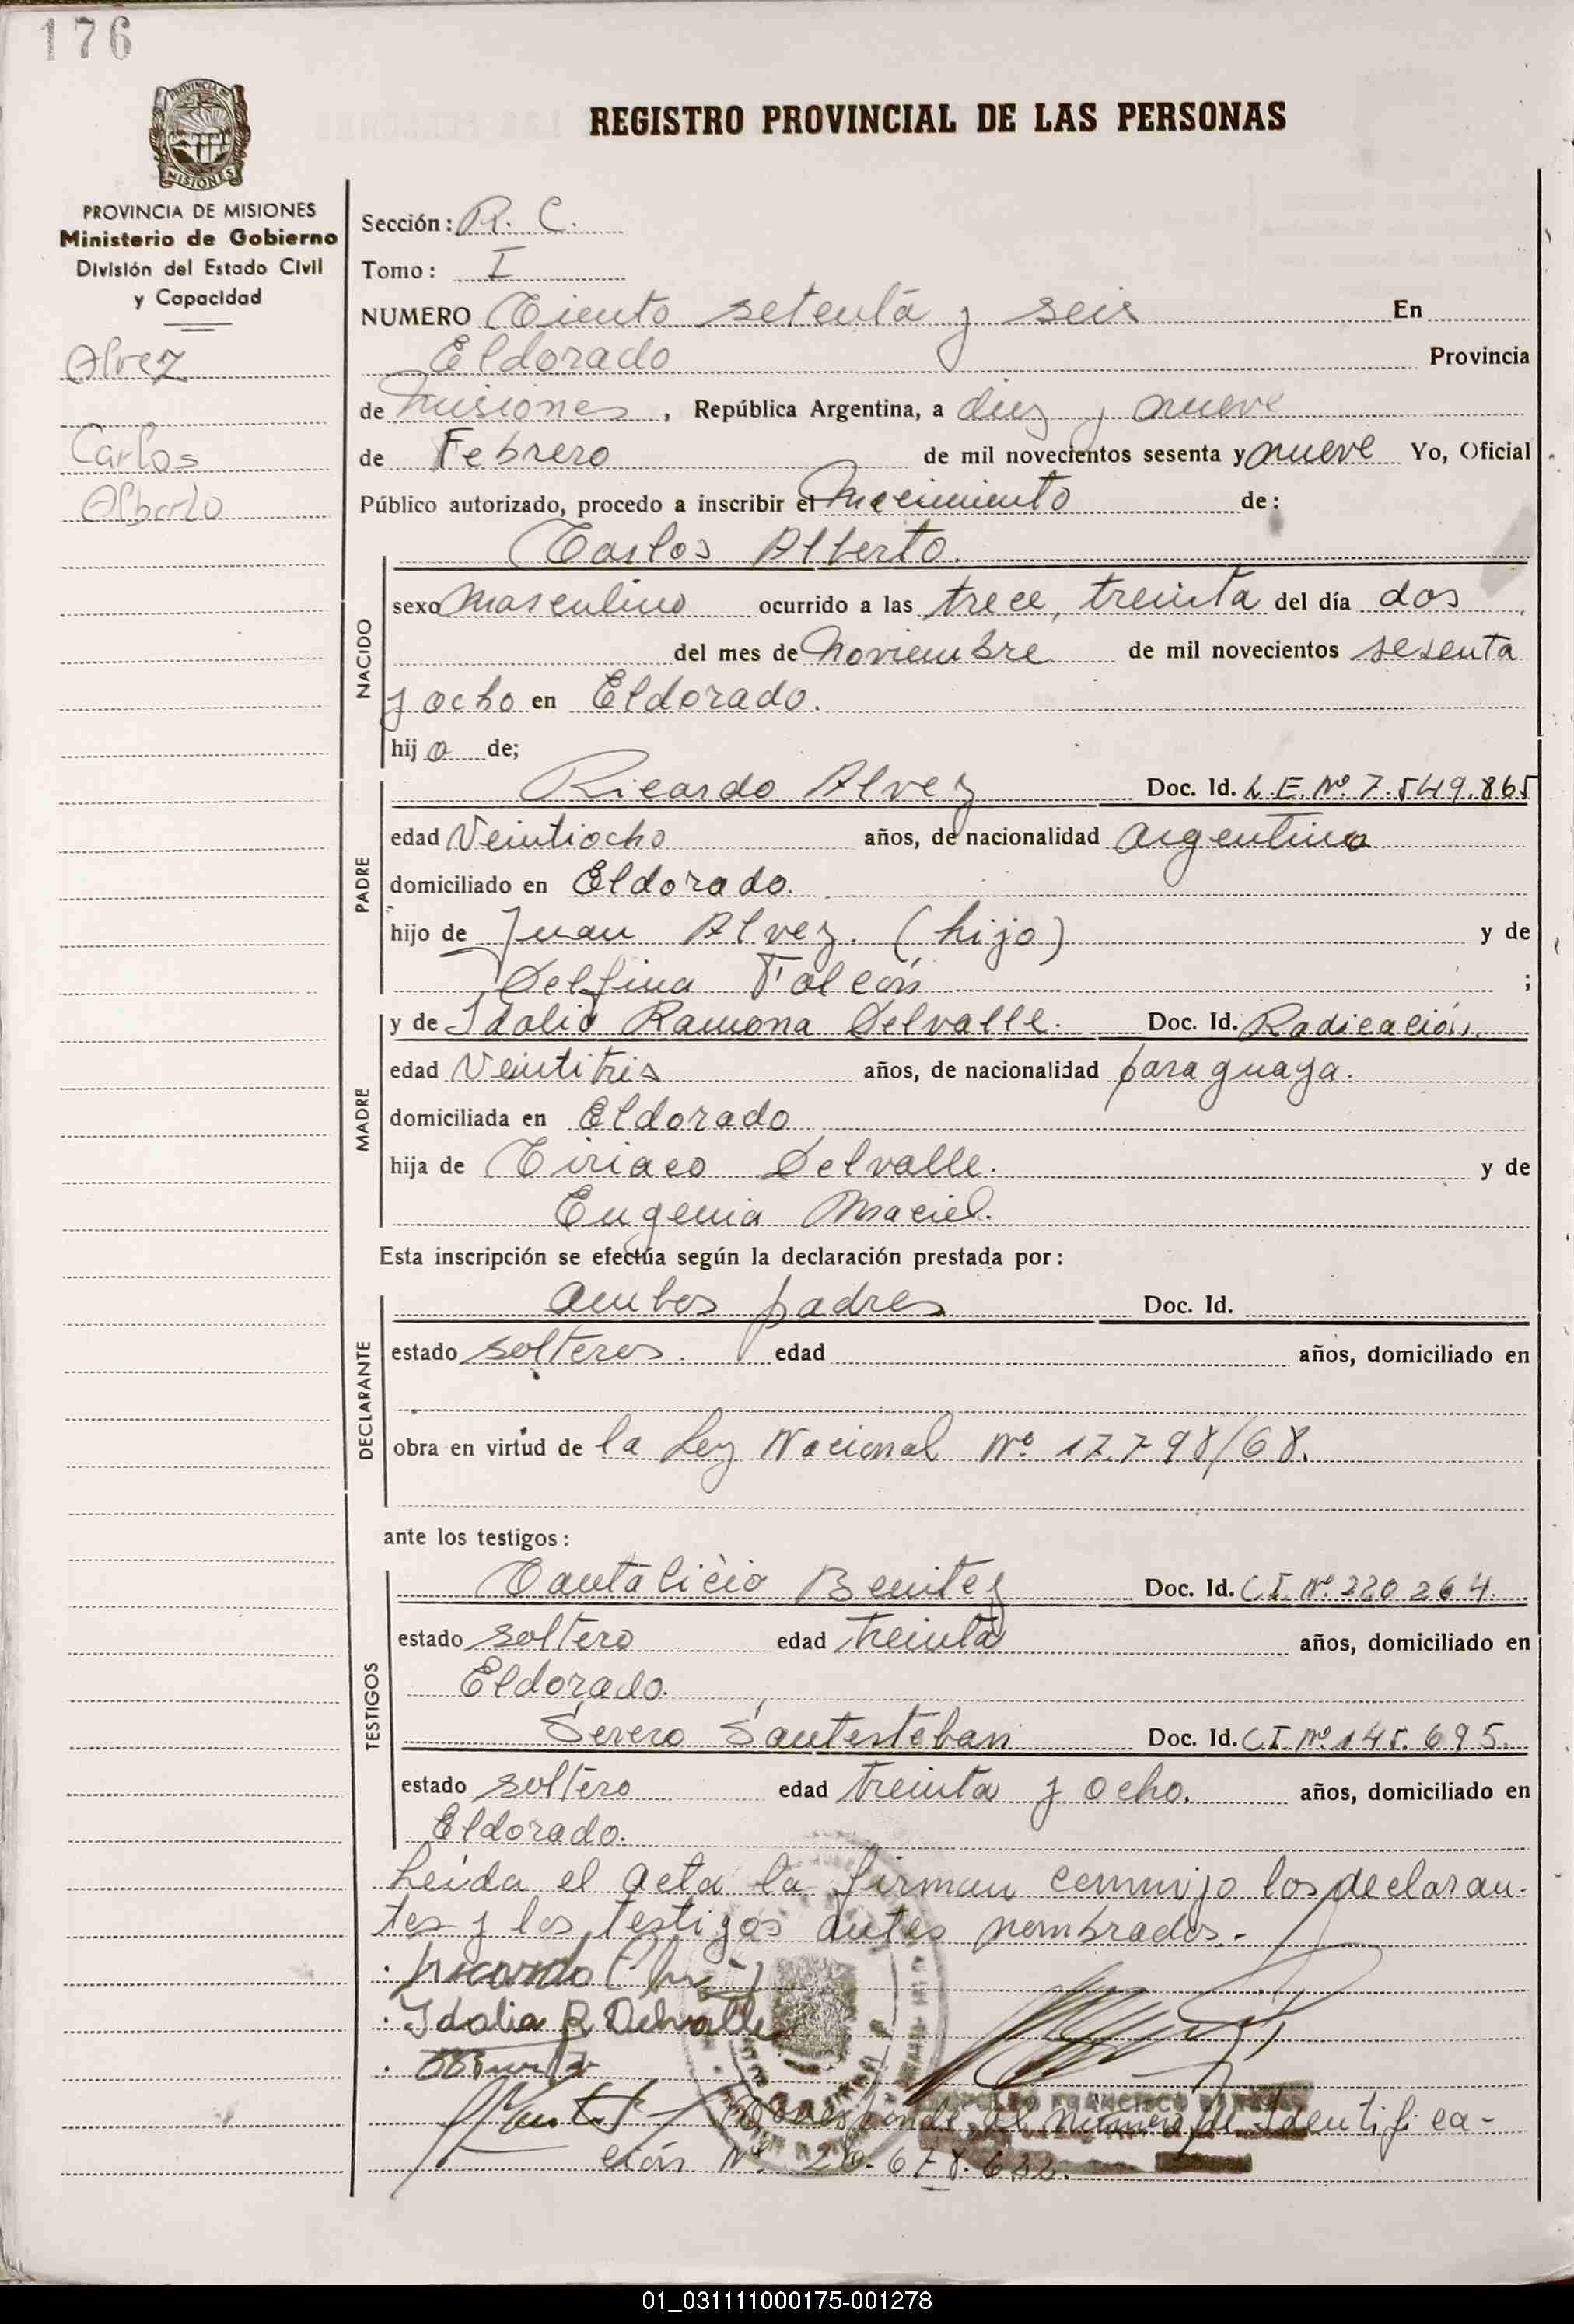 176
PROVINCIA DE MISIONES
REGISTRO PROVINCIAL DE LAS PERSONAS
PROVINCIA DE MISIONES
Ministerio de Gobierno
División del Estado Civil
y Capacidad
Alvez
Carlos
Alberto
Sección: R. C.
Tomo: I
NUMERO Ciento setenta y seis En
Eldorado Provincia
de Misiones, República Argentina, a diez y nueve
de Febrero de mil novecientos sesenta y nueve Yo, Oficial
Público autorizado, procedo a inscribir el Nacimiento de:
Carlos Alberto.
NACIDO
sexo Masculino ocurrido a las trece, treinta del día dos
del mes de Noviembre de mil novecientos sesenta
y ocho en Eldorado.
hijo de;
PADRE
Ricardo Alvez Doc. Id. L.E. Nº 7.549.865
edad Veintiocho años, de nacionalidad argentina
domiciliado en Eldorado.
hijo de Juan Alvez. (hijo) y de
Delfina Falcón ;
MADRE
y de Idalia Ramona Delvalle. Doc. Id. Radicación.
edad Veintitrés años, de nacionalidad paraguaya.
domiciliada en Eldorado
hija de Ciriaco Delvalle. y de
Eugenia Maciel.
Esta inscripción se efectúa según la declaración prestada por:
DECLARANTE
ambos padres Doc. Id.
estado solteros. edad años, domiciliado en
obra en virtud de la Ley Nacional Nº 17.798/68.
ante los testigos:
TESTIGOS
Cantalicio Benitez Doc. Id. C.I. Nº 220.264.
estado soltero edad treinta años, domiciliado en
Eldorado.
Severo Santesteban Doc. Id. C.I. Nº 145.695.
estado soltero edad treinta y ocho. años, domiciliado en
Eldorado.
Leída el acta la firman conmigo los declaran-
tes y los testigos antes nombrados.-
Ricardo
Idalia R Delvalle
FRANCISCO
Corresponde al número de Identifica-
ción Nº 20.678.622.
01_031111000175-001278